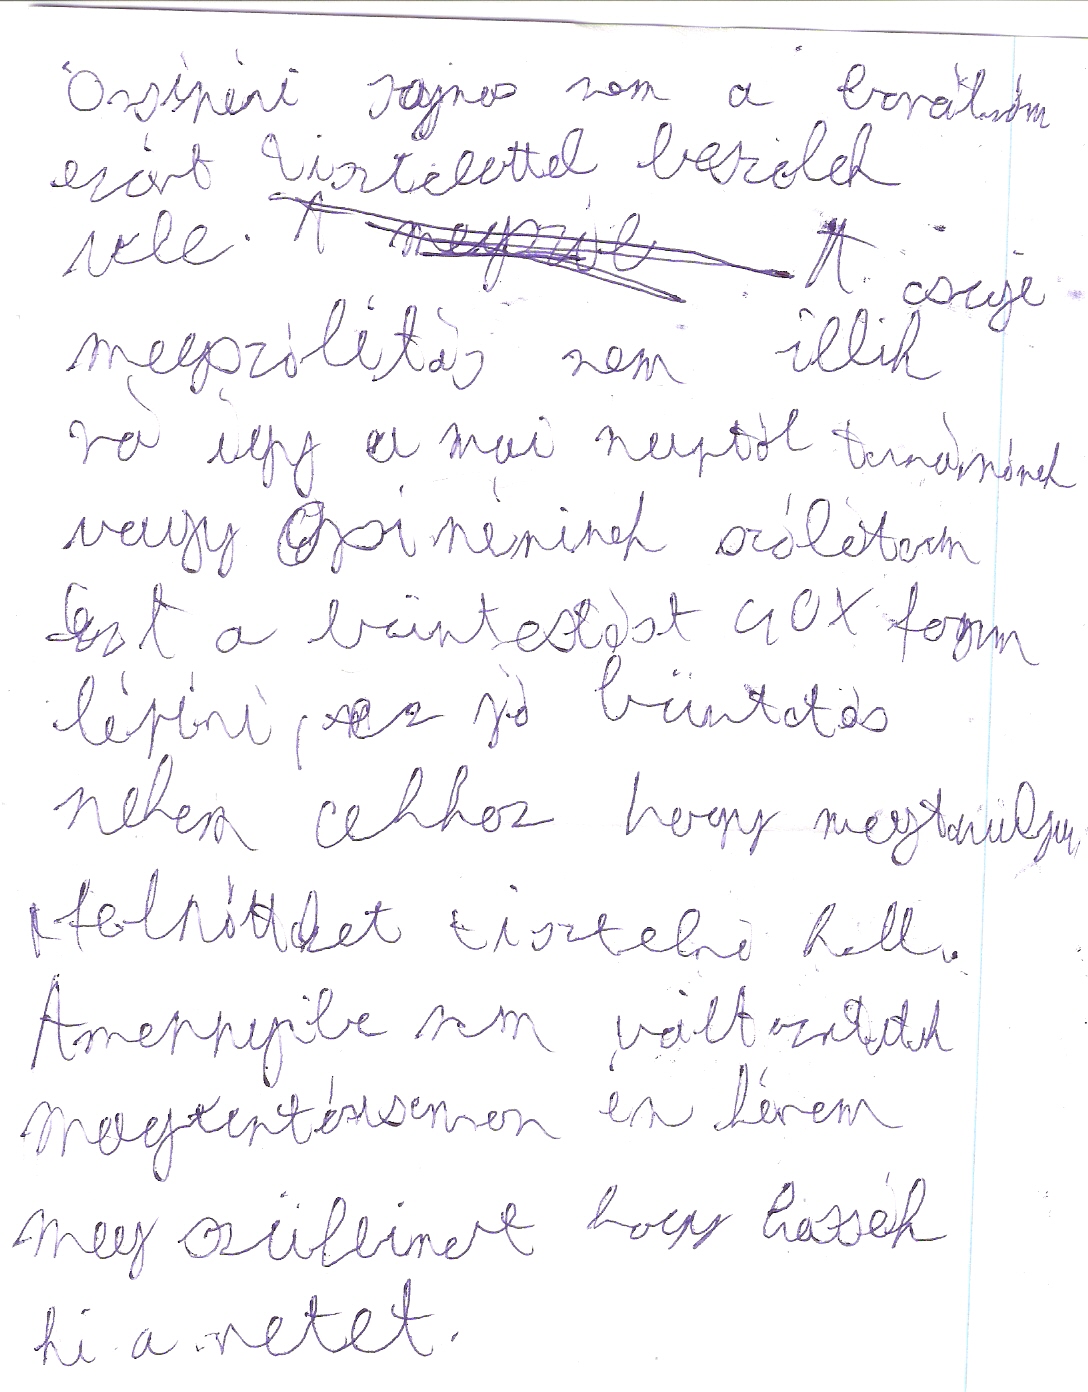 Őszinéni sajnos nem a barátnőm
ezért tisztelettel beszélek
vele. A csúje
megszólítás nem illik
rá így a mai naptól tanárnőnek
vagy Őszinéninek szólítom
Ezt a büntetést 40X fogom
leírni, ez jó büntetés
nekem ahhoz hogy megtanuljam
felnőtteket tisztelni kell.
Amennyibe nem változtatok
magatartásomon én kérem
meg szüleimet hogy kössék
ki a netet.